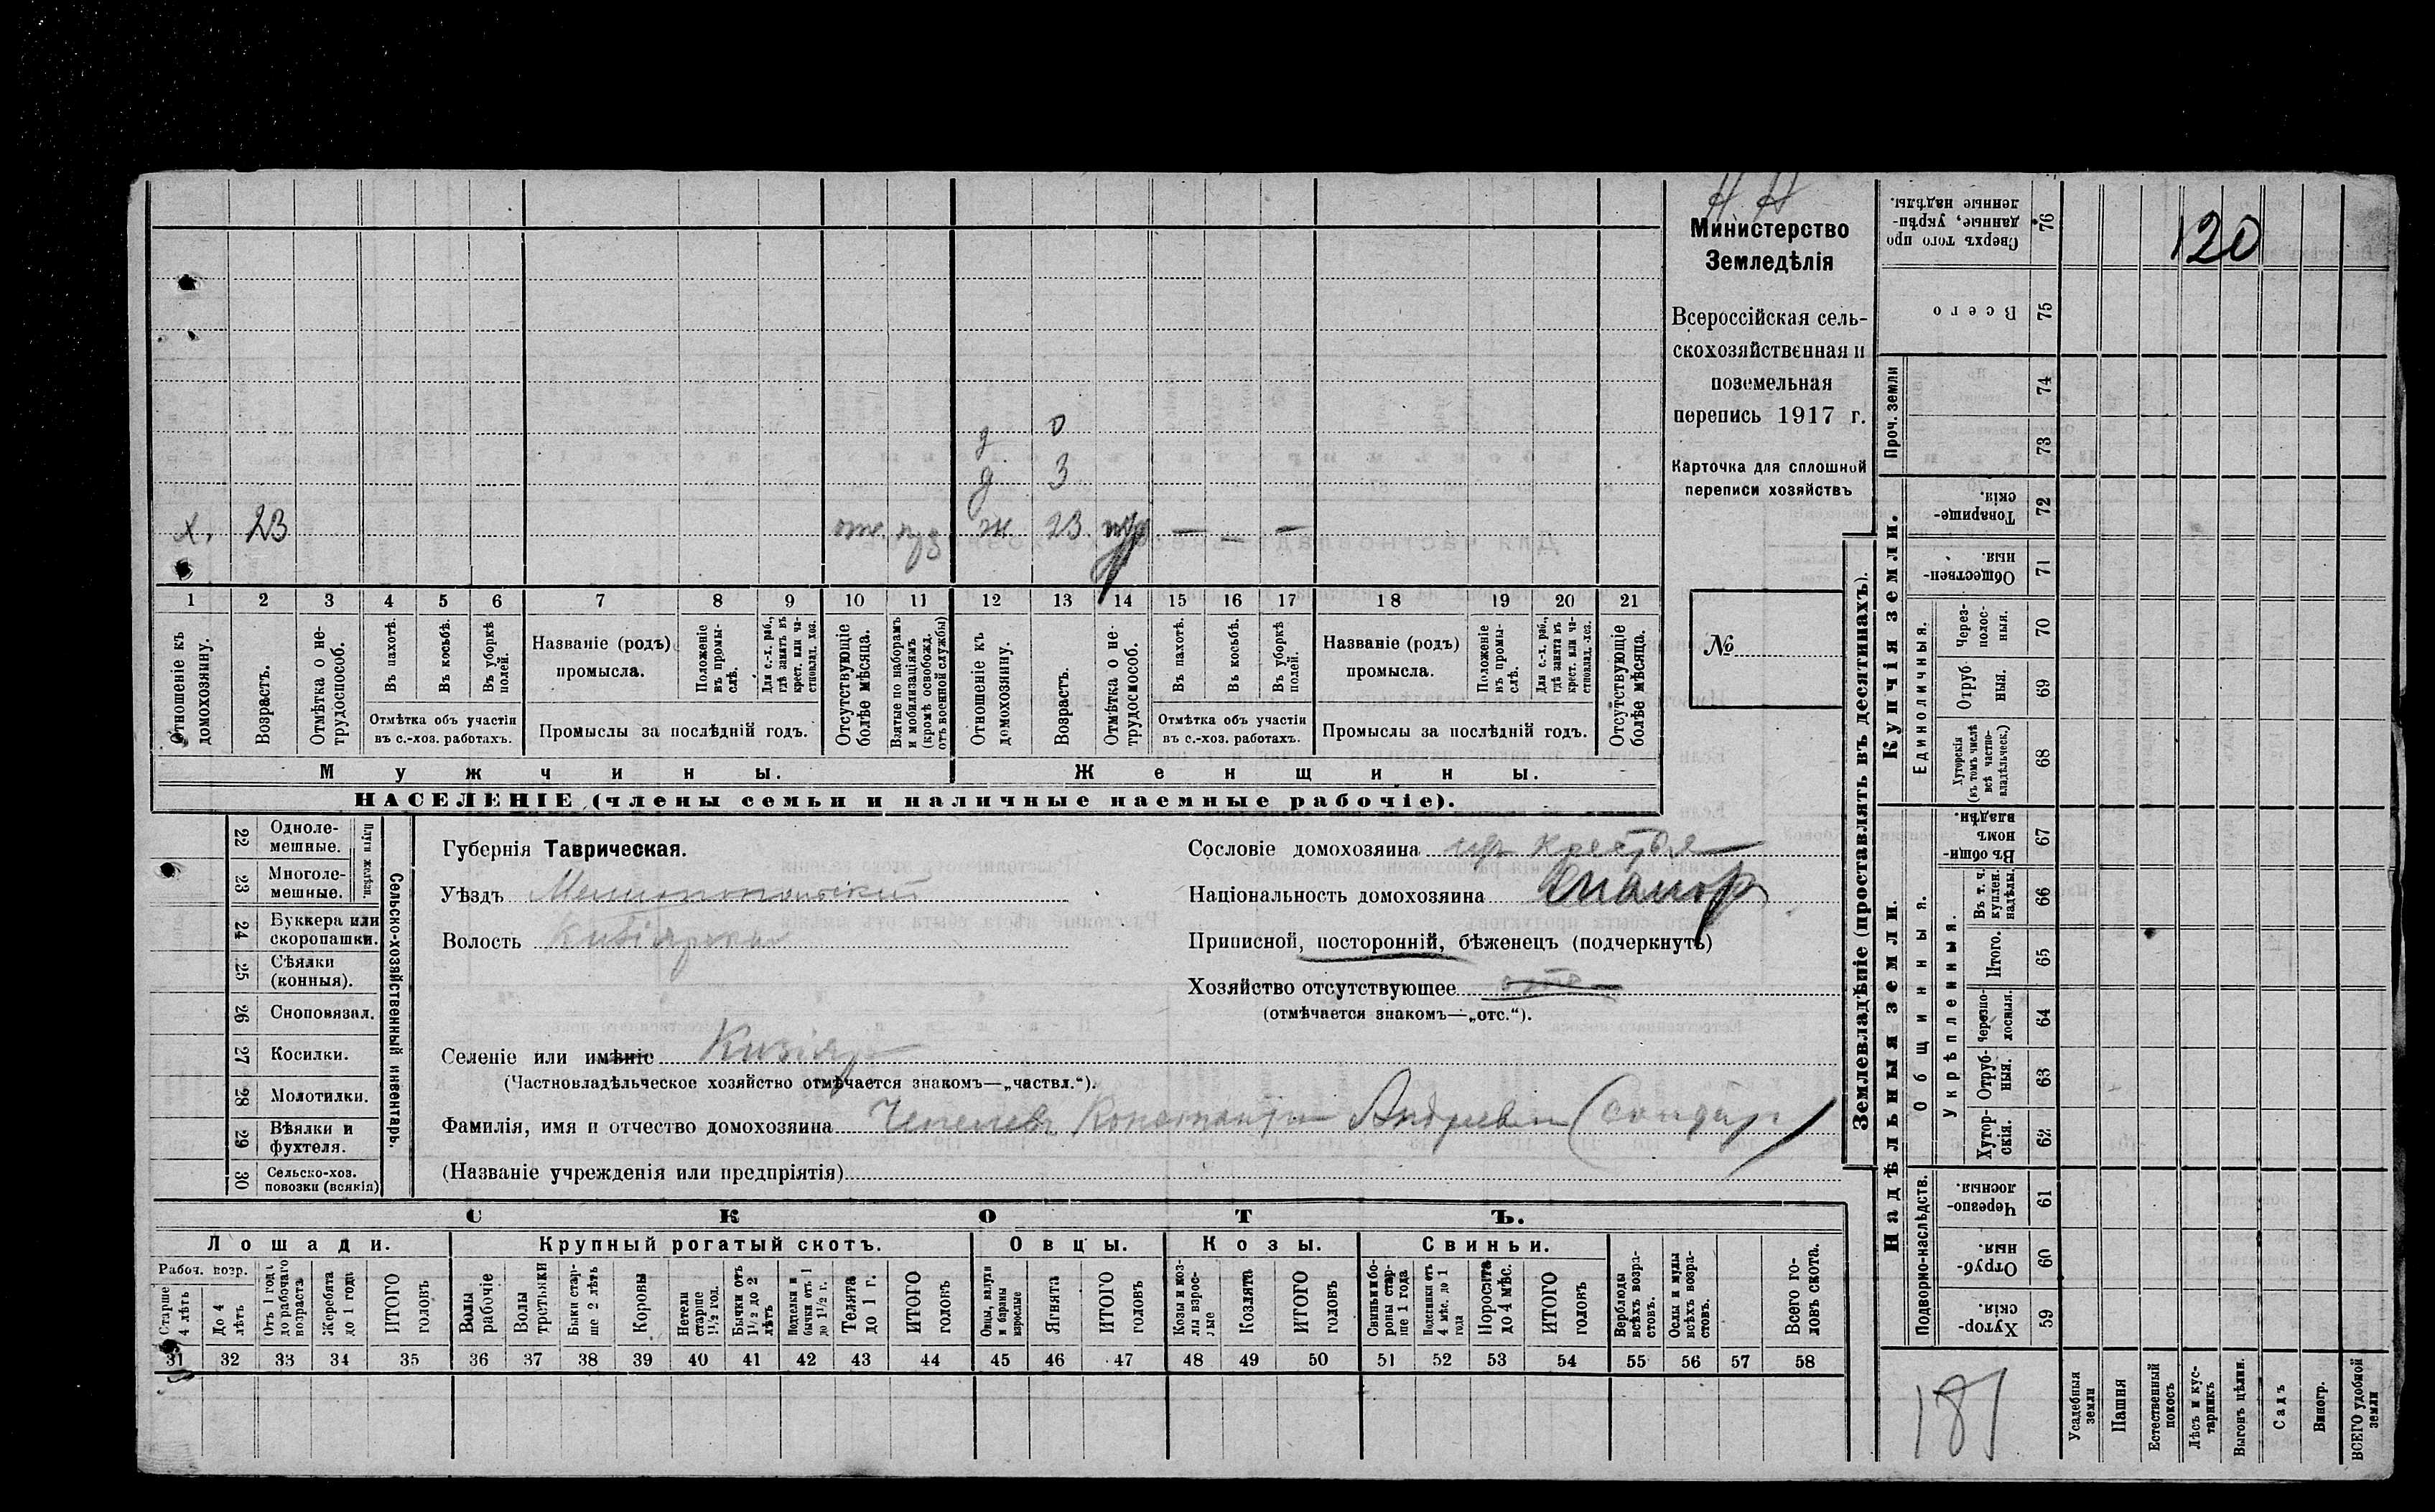 Министерство
Земледѣлія
Всероссійская сель-
скохозяйственная и
поземельная
перепись 1917 г.
Карточка для сплошной
переписи хозяйствъ
№
д 0
д 3
х. 23 ж 23 — — —
1 2 3 4 5 6 7 8 9 10 11 12 13 14 15 16 17 18 19 20 21
Отношеніе къ домохозяину.
Возрастъ.
Отмѣтка о не-трудоспособ.
Въ пахотѣ.
Въ косьбѣ.
Въ уборкѣ полей.
Отмѣтка объ участіи
въ с.-хоз. работахъ.
Названіе (родъ)
промысла.
Положеніе въ промы-слѣ.
Для с.-х. раб., гдѣ занятъ въ крест. или ча-стновлад. хоз.
Промыслы за послѣдній годъ.
Отсутствующіе болѣе мѣсяца.
Взятые по наборамъ и мобилизаціямъ (кромѣ освобожд. отъ военной службы)
Отношеніе къ домохозяину.
Возрастъ.
Отмѣтка о не-трудоспособ.
Въ пахотѣ.
Въ косьбѣ.
Въ уборкѣ полей.
Отмѣтка объ участіи
въ с.-хоз. работахъ.
Названіе (родъ)
промысла.
Положеніе въ промы-слѣ.
Для с.-х. раб., гдѣ занятъ въ крест. или ча-стновлад. хоз.
Промыслы за послѣдній годъ.
Отсутствующіе болѣе мѣсяца.
Мужчины. Женщины.
НАСЕЛЕНІЕ (члены семьи и наличные наемные рабочіе).
22 Одноле-мешные.
23 Многоле-мешные.
Плуги желѣзн.
24 Буккера или скоропашки.
25 Сѣялки (конныя).
26 Сноповязал.
27 Косилки.
28 Молотилки.
29 Вѣялки и фухтеля.
30 Сельско-хоз. повозки (всякія)
Сельско-хозяйственный инвентарь.
Губернія Таврическая.
Уѣздъ Мелитопольскій
Волость Кизіярская
Сословіе домохозяина
Національность домохозяина
Приписной, посторонній, бѣженецъ (подчеркнуть)
Хозяйство отсутствующее
(отмѣчается знакомъ—„отс.“).
Селеніе или имѣніе Кизіяр
(Частновладѣльческое хозяйство отмѣчается знакомъ—„частвл.“).
Фамилія, имя и отчество домохозяина Чепелевъ Константин Андреевич
(Названіе учрежденія или предпріятія)
СКОТЪ.
Лошади. Крупный рогатый скотъ. Овцы. Козы. Свиньи.
Рабоч. возр.
Старше 4 лѣтъ
До 4 лѣтъ
Отъ 1 года до рабочаго возраста
Жеребята до 1 года
ИТОГО головъ
Волы рабочіе
Волы третьяки
Быки стар-ше 2 лѣтъ
Коровы
Нетели старше 1½ год.
Бычки отъ 1½ до 2 лѣтъ
Подтелки и бычки отъ 1 до 1½ г.
Телята до 1 г.
ИТОГО головъ
Овцы, валухи и бараны взрослые
Ягнята
ИТОГО головъ
Козы и коз-лы взрос-лые
Козлята
ИТОГО головъ
Свиньи и бо-ровы стар-ше 1 года
Подсвинки отъ 4 мѣс. до 1 года
Поросята до 4 мѣс.
ИТОГО головъ
Верблюды всѣхъ возра-стовъ.
Ослы и мулы всѣхъ возра-стовъ.
Всего го-ловъ скота.
31 32 33 34 35 36 37 38 39 40 41 42 43 44 45 46 47 48 49 50 51 52 53 54 55 56 57 58
Землевладѣніе (проставлять въ десятинахъ).
Сверхъ того про-данные, укрѣп-ленные надѣлы. 76
120
Всего 75
Проч. земли 74
73
Купчія земли.
Товарище-скія. 72
Обществен-ныя. 71
Единоличныя.
Через-полос-ныя. 70
Отруб-ныя. 69
Хуторскія (въ томъ числѣ всѣ частно-владѣльческ.) 68
Надѣльныя земли.
Общинныя.
Въ общи-номъ владѣн. 67
Укрѣпленныя.
Въ т. ч. куплен. надѣлы. 66
Итого. 65
Черезпо-лосныя. 64
Отруб-ныя. 63
Хутор-скія. 62
Подворно-наслѣдств.
Черезпо-лосныя. 61
Отруб-ныя. 60
Хутор-скія. 59
181
Усадебныя земли
Пашня
Естественный покосъ
Лѣсъ и кус-тарникъ
Выгонъ цѣлин.
Садъ
Виногр.
ВСЕГО удобной земли